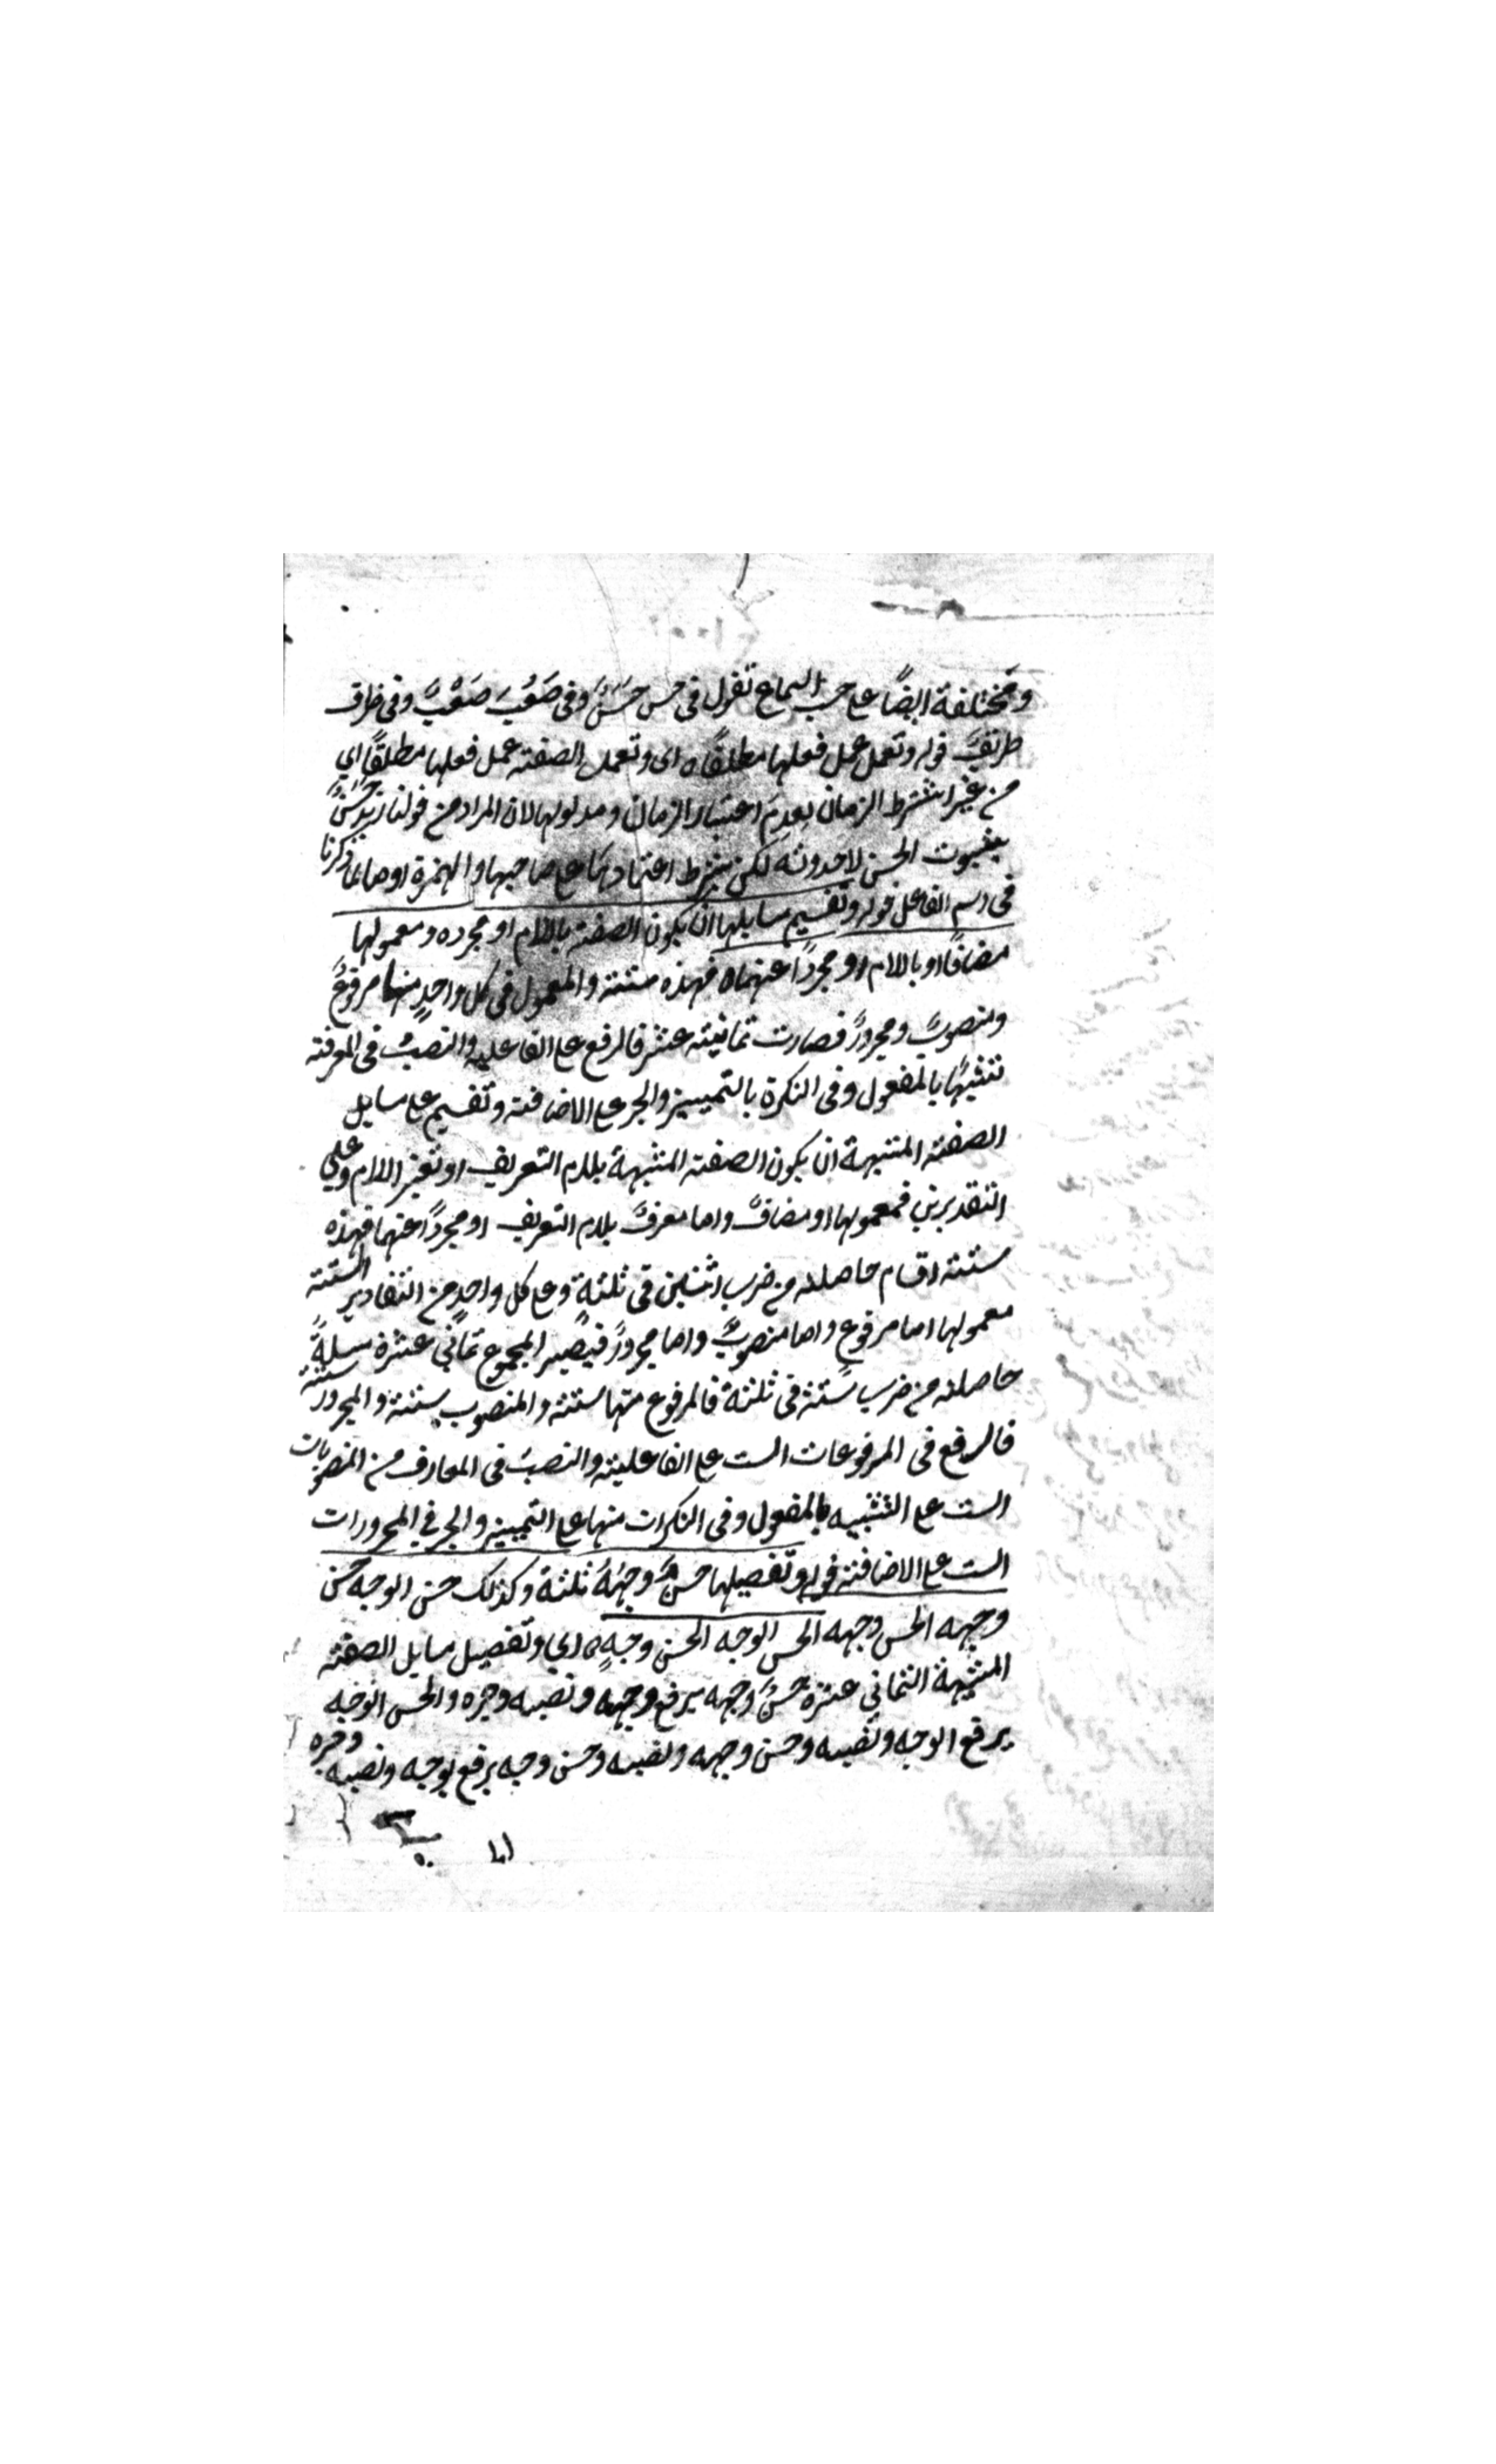 ومختلفة ايضًا على حسب السماع تقول في حسن حَسَنٌ وفي صَعُبَ صَعْبٌ وفي ظرف
ظريفٌ قوله وتعمل عمل فعلها مطلقًا ه اى وتعمل الصفة عمل فعلها مطلقًا اي
من غير اشتراط الزمان لعدم اعتبار الزمان ومدلولها لان المراد من قولنا زيدٌ حَسَنٌ
بثبوت الحسن لا حدوثه لكن بشرط اعتمادها على صاحبها والهمزة او ما لما ذكرنا
في اسم الفاعل قوله وتقسيم مسايلها ان يكون الصفة باللام او مجرده ومعمولها
مضافًا او باللام او مجردًا عنهما ه فهذه ستة والمعمول في كل واحدٍ منها مرفوعٌ
ومنصوبٌ ومجرورٌ فصارت ثمانية عشر فالرفع على الفاعلية والنصبُ في المعرفة
تشبيهًا بالمفعول وفي النكرة بالتمييز والجر على الاضافة وتقسيم على مسايل
الصفة المشبهة ان يكون الصفة المشبهة بلام التعريف او بغير اللام وعلى
التقديرين فمعمولها او مضافٌ واما معرفٌ بلام التعريف او مجردًا عنهما فهذه
ستة اقسام حاصله من ضرب اثنين في ثلثةٍ وعلى كل واحدٍ من التقادير الستة
معمولها اما مرفوع واما منصوبٌ واما مجرورٌ فيصير المجموع ثماني عشرة مسلةً
حاصله من ضرب ستة في ثلثة فالمرفوع منها ستة والمنصوب ستة والمجرور ستة
فالرفع في المرفوعات الست على الفاعلية والنصبُ في المعارف من المنصوبات
الست على التشبيه بالمفعول وفي النكرات منها على التمييز والجر في المجرورات
الست على الاضافة قوله وتفصيلها حسنٌ وجهُهُ ثلثة وكذلك حسن الوجه حسن
وجهه الحسن وجهه الحسن الوجه الحسن وجهٍ ه اي وتفصيل مسايل الصفة
المشبهة الثماني عشرة حسنٌ وجهه برفع وجهه ونصبه وجره والحسن الوجه
برفع الوجه ونصبه وحسن وجهه ونصبه وحسن وجه برفع بوجه ونصبه وجره